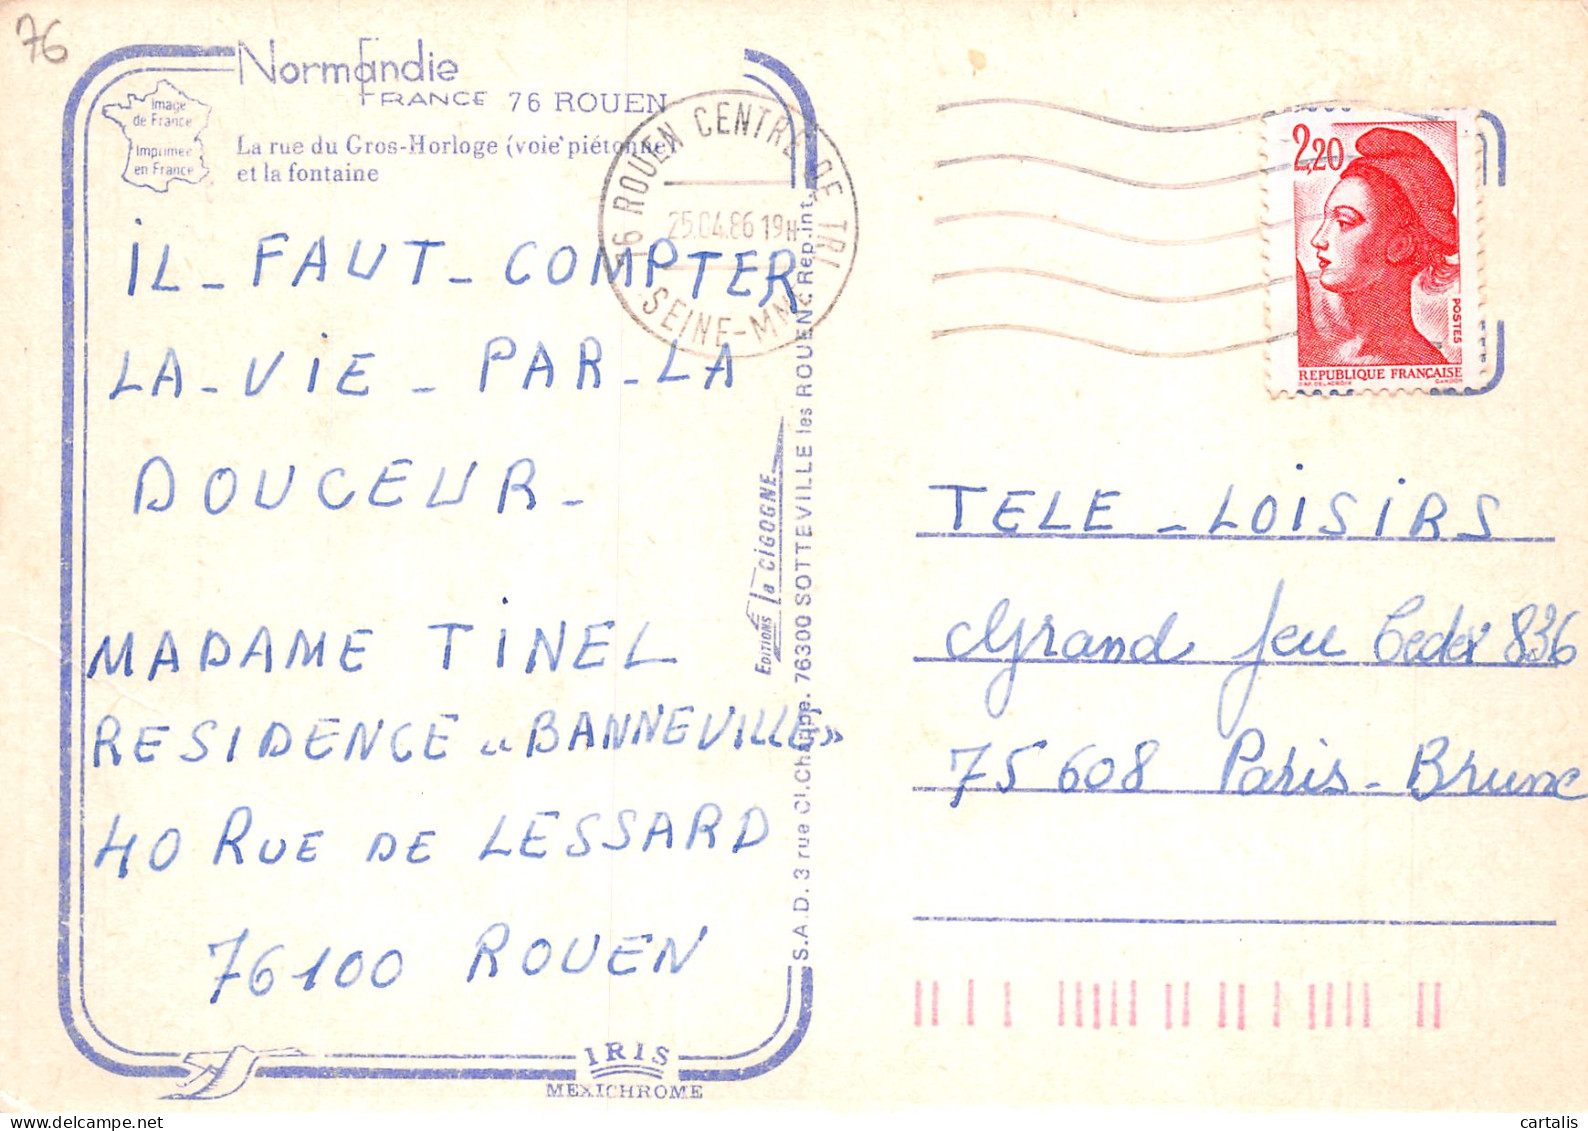 76
Normandie
FRANCE 76 ROUEN
Image
de France
Imprimée
en France
La rue du Gros-Horloge (voie piétonne)
et la fontaine
76 ROUEN CENTRE DE TRI
25.04.86 19H
SEINE-MME
IL - FAUT - COMPTER
LA - VIE - PAR - LA
DOUCEUR -
MADAME TINEL
RESIDENCE "BANNEVILLE»
40 RUE DE LESSARD
76100 ROUEN
EDITIONS la CIGOGNE
S.A.D. 3 rue Cl. Chappe. 76300 SOTTEVILLE les ROUEN. Rep. int.
IRIS
MEXICHROME
2,20
POSTES
REPUBLIQUE FRANÇAISE
D'AP. DELACROIX GANDON
TELE - LOISIRS
Grand Jeu Cedex 836
75608 Paris - Brune
cartalis
delcampe.net